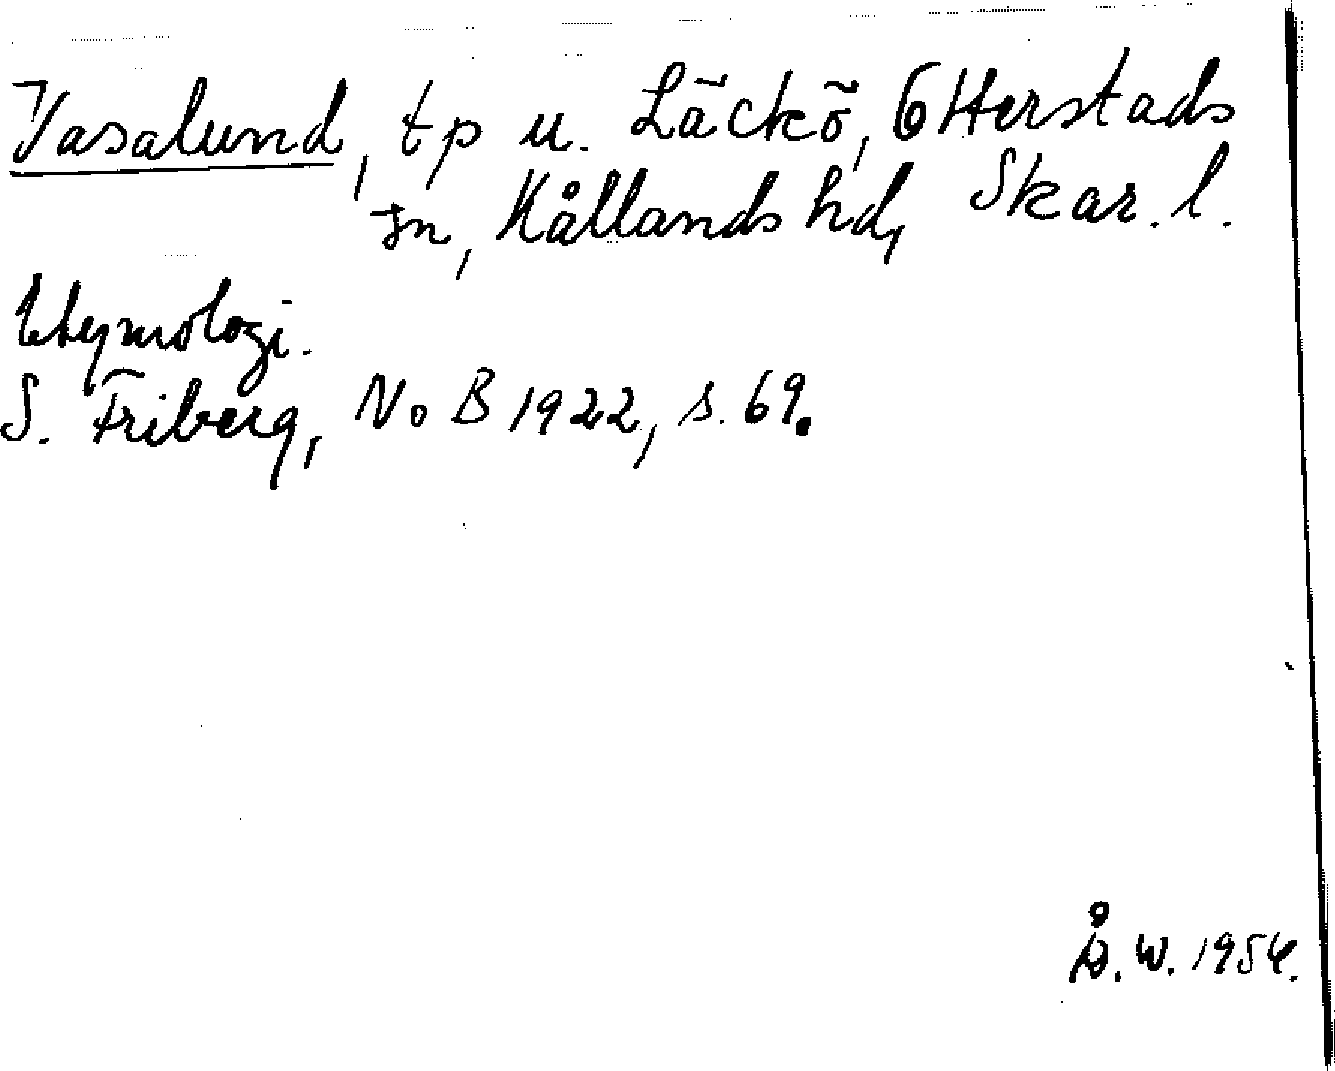 Vasalund, tp u. Läckö, Otterstads
sn, Kållands hd, Skar. l.
Etymologi.
S. Friberg, NoB 1922, s. 69.
Å. W. 1954.